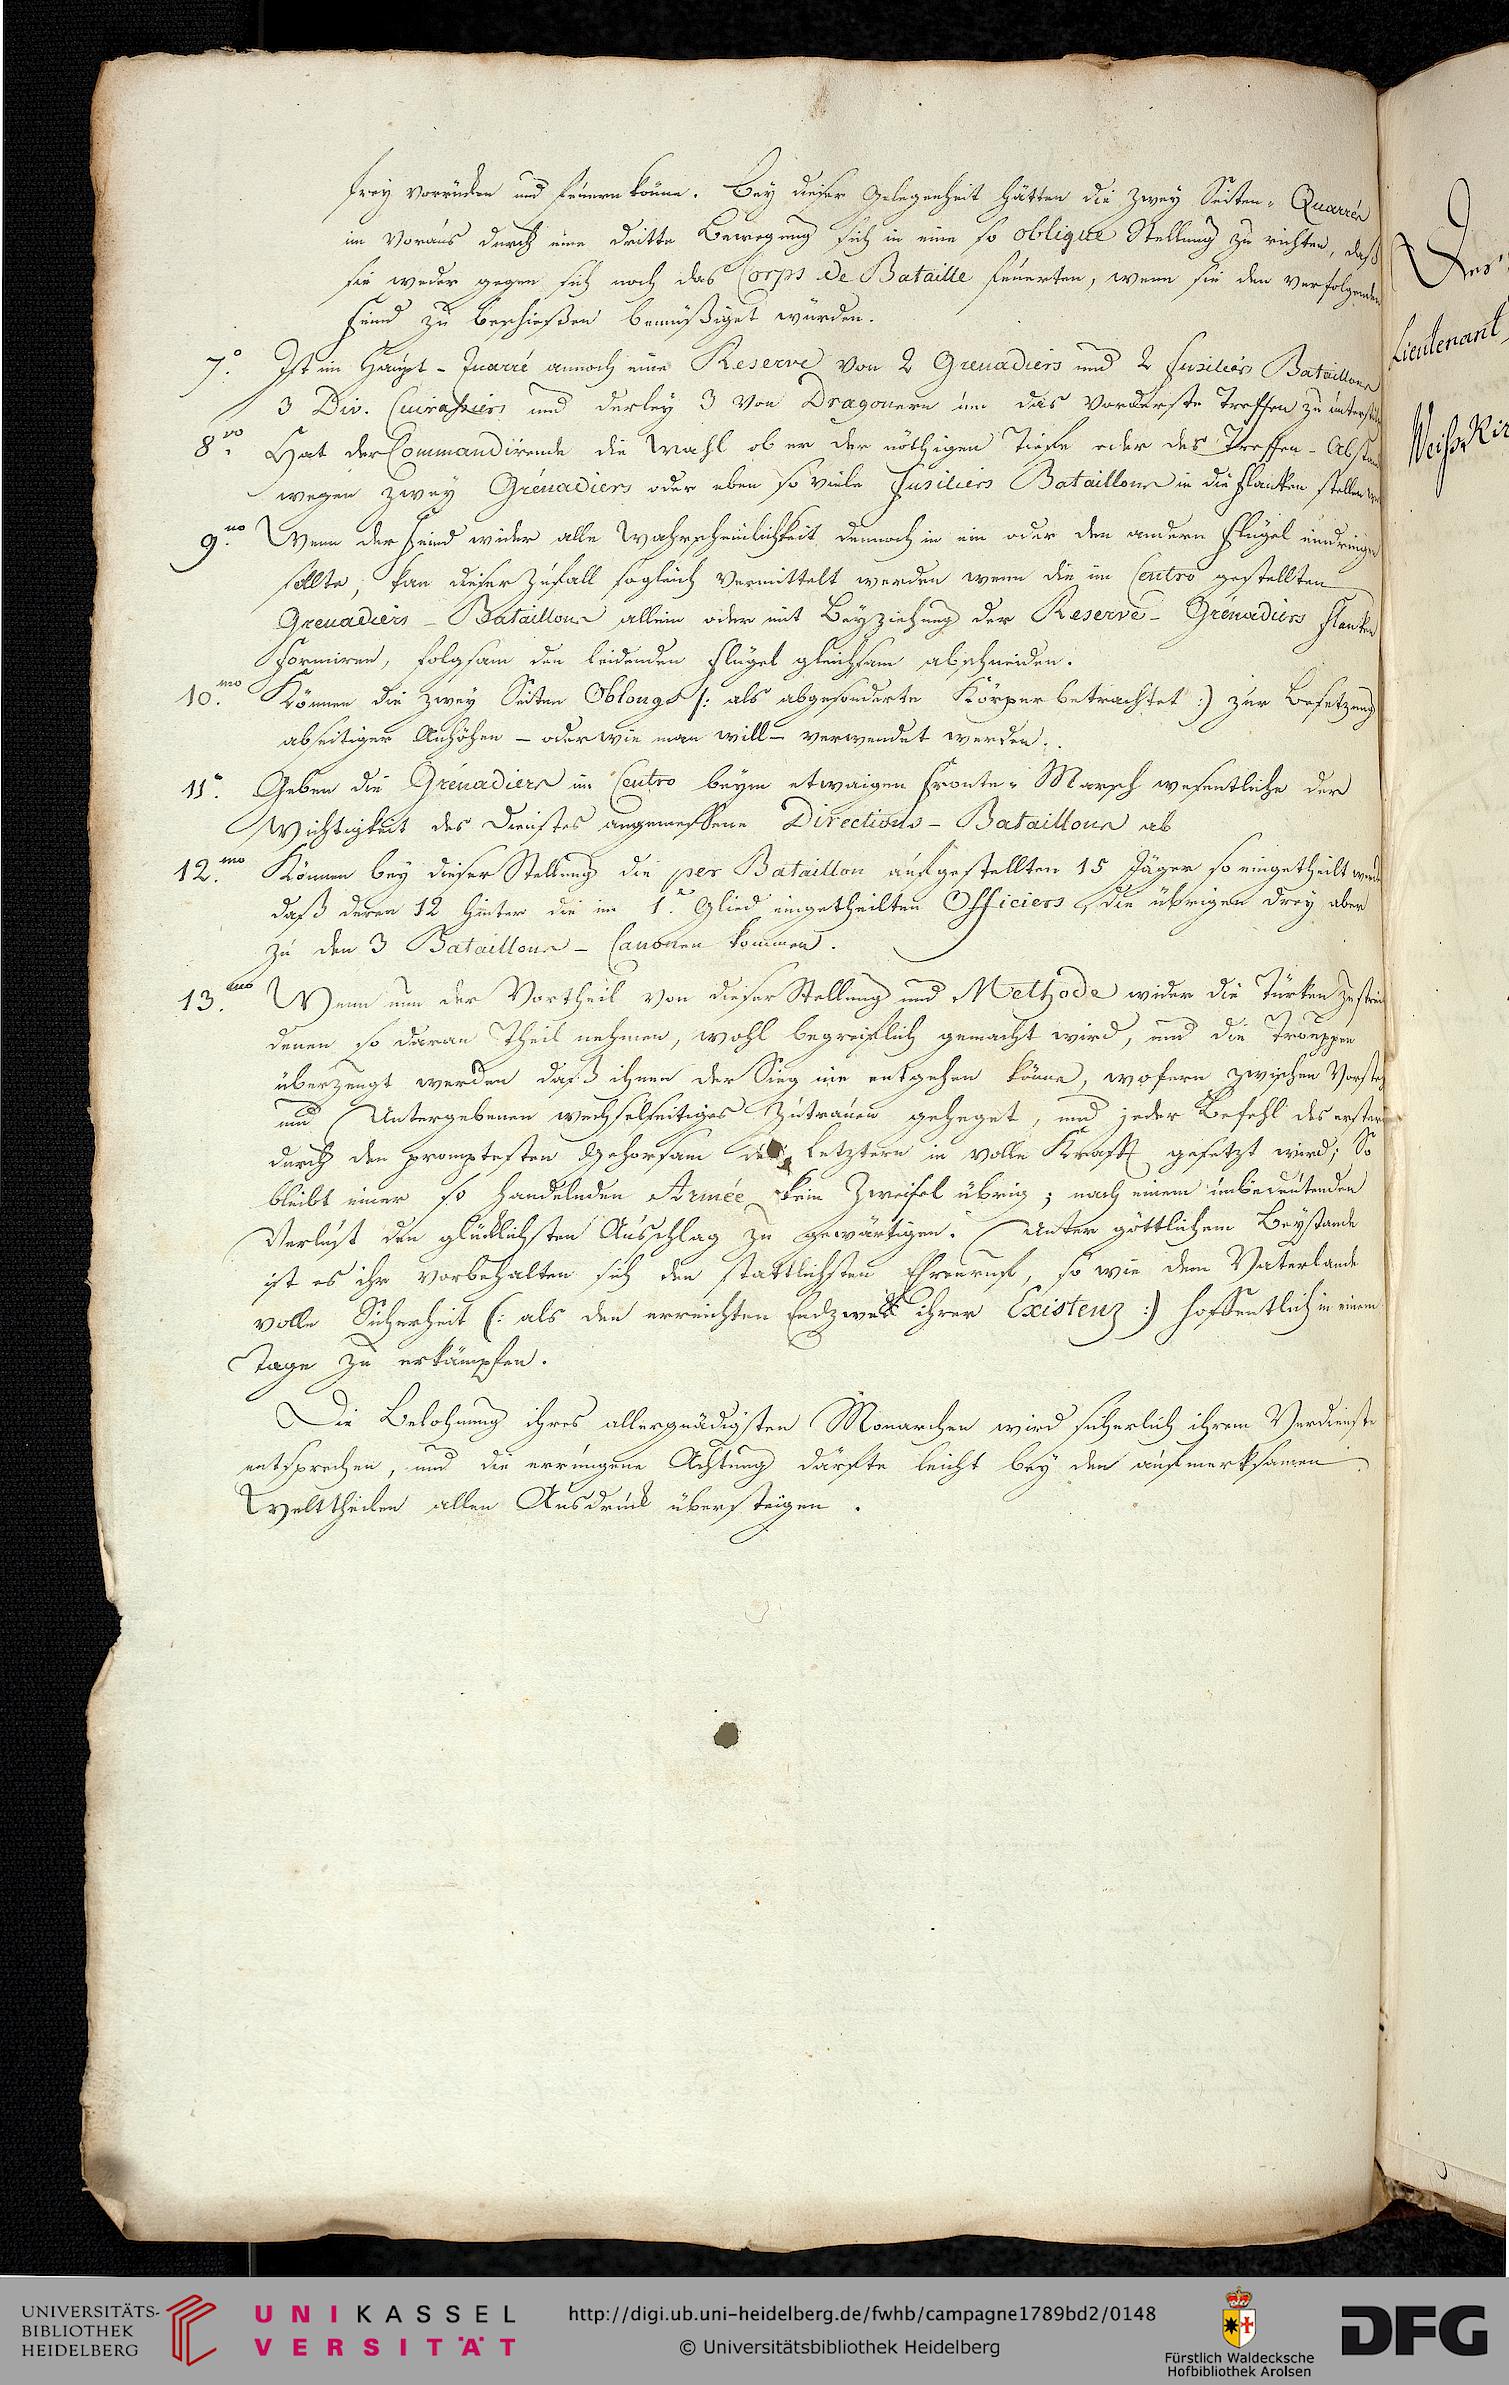 frey vorrücken und feuern könne. Bey dieser Gelegenheit hätten die zwey Seiten-Quarrée
im Voraus durch eine dritte Bewegung sich in eine so oblique Stellung zu richten, daß
sie weder gegen sich noch das Corps de Bataille feuerten, wenn sie den verfolgenden
Feind zu beschießen bemüßiget würden.
7.º Ist im Haupt-Quarré annoch eine Reserve von 2 Grenadiers und 2 Fusiliers Bataillons
3 Div. Cuirassiers und derley 3 von Dragonern um das vorderste Treffen zu
8.vo Hat der Commandirende die Wahl ob er der nöthigen Tiefe oder des Treffen-
wegen zwey Grénadiers oder eben so viele Fusiliers Bataillons in die Flanken stellen
9.no Wenn der Feind wider alle Wahrscheinlichkeit dennoch in ein oder den andern Flügel eindringen
sollte, kan dieser Zufall sogleich vermittelt werden wenn die im Centro gestellten
Grenadiers-Bataillons allein oder mit Beyziehung der Reserve-Grénadiers Flanken
formiren, folgsam den leidenden Flügel gleichsam abschneiden.
10.mo Können die zwey Seiten Oblongs (: als abgesonderte Körper betrachtet :) zur Besetzung
abseitiger Anhöhen - oder wie man will - verwendet werden.
11.º Geben die Grénadiers im Centro beym etwaigen Fronte-Marsch wesentliche der
Wichtigkeit des Dienstes angemessene Directions-Bataillons ab
12.mo Können bey dieser Stellung die per Bataillon aufgestellten 15 Jäger so eingetheilt
daß deren 12 hinter die im 1. Glied eingetheilten Officiers, die übrigen drey aber
zu den 3 Bataillons-Canonen kommen.
13. Wenn nun der Vortheil von dieser Stellung und Methode wider die Türken
denen so daran Theil nehmen, wohl begreiflich gemacht wird, und die Trouppen
überzeugt werden daß ihnen der Sieg nie entgehen könne, wofern zwischen
und Untergebenen wechselseitiges Zutrauen geheget, und jeder Befehl des
durch den promptesten Gehorsam der Letztern in volle Kraft gesetzt wird; So
bleibt einer so handelnden Armée kein Zweifel übrig; nach einem unbedeutenden
Verlust den glücklichsten Ausschlag zu gewärtigen. Unter göttlichem Beystande
ist es ihr vorbehalten sich den stattlichsten Ehrenruf, so wie dem Vaterlande
volle Sicherheit (: als den erreichten Endzweck ihrer Existenz :) hoffentlich in einem
Tage zu erkämpfen.
Die Belohnung ihres allergnädigsten Monarchen wird sicherlich ihrem Verdienste
entsprechen, und die errungene Achtung dürfte leicht bey den aufmerksamen
Welttheilen allen Ausdruck übersteigen.
Lieutenant
UNIVERSITÄTS-
BIBLIOTHEK
HEIDELBERG
UNIKASSEL
VERSITÄT
http://digi.ub.uni-heidelberg.de/fwhb/campagne1789bd2/0148
© Universitätsbibliothek Heidelberg
Fürstlich Waldecksche
Hofbibliothek Arolsen
DFG